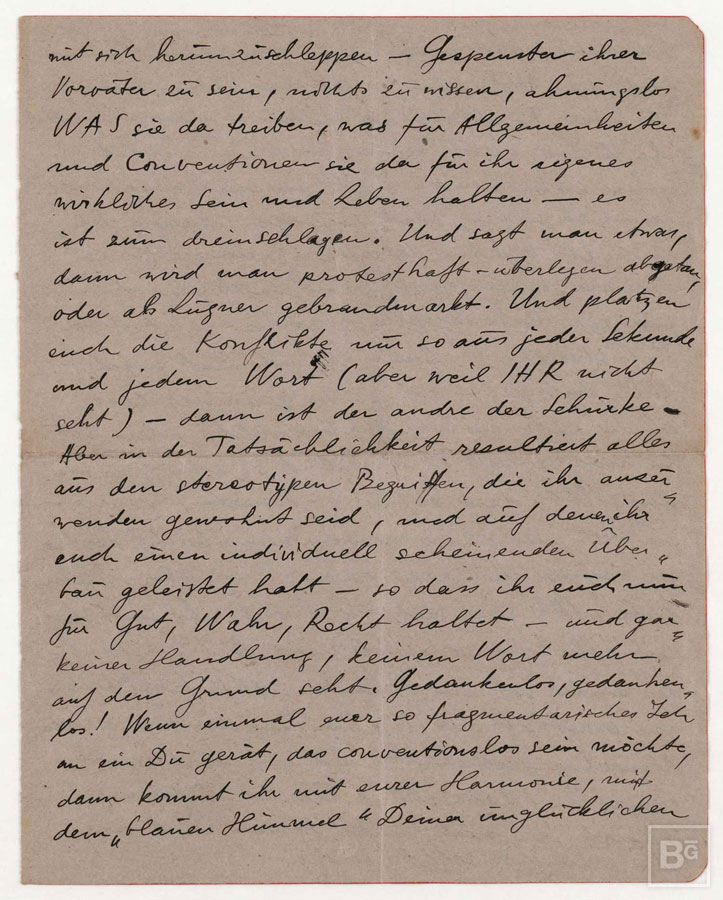 mit sich herumzuschleppen — Gespenster ihrer
Vorväter zu sein, nichts zu wissen, ahnungslos
WAS sie da treiben, was für Allgemeinheiten
und Conventionen sie da für ihr eigenes
wirkliches Sein und Leben halten — es
ist zum dreinschlagen. Und sagt man etwas,
dann wird man protesthaft-überlegen abgetan,
oder als Lügner gebrandmarkt. Und platzen
euch die Konflikte nur so aus jeder Sekunde
und jedem Wort (aber weil IHR nicht
seht) — dann ist der andre der Schurke —
Aber in der Tatsächlichkeit resultiert alles
aus den stereotypen Begriffen, die ihr anzu„
wenden gewohnt seid, und auf denen ihr
euch einen individuell scheinenden Über„
bau geleistet habt — so dass ihr euch nun
für Gut, Wahr, Recht haltet — und gar„
keiner Handlung, keinem Wort mehr
auf den Grund seht. Gedankenlos, gedanken„
los! Wenn einmal euer so fragmentarisches Ich
an ein Du gerät, das conventionslos sein möchte,
dann kommt ihr mit eurer Harmonie, mit
dem „blauen Himmel“ Deiner unglücklichen
BG